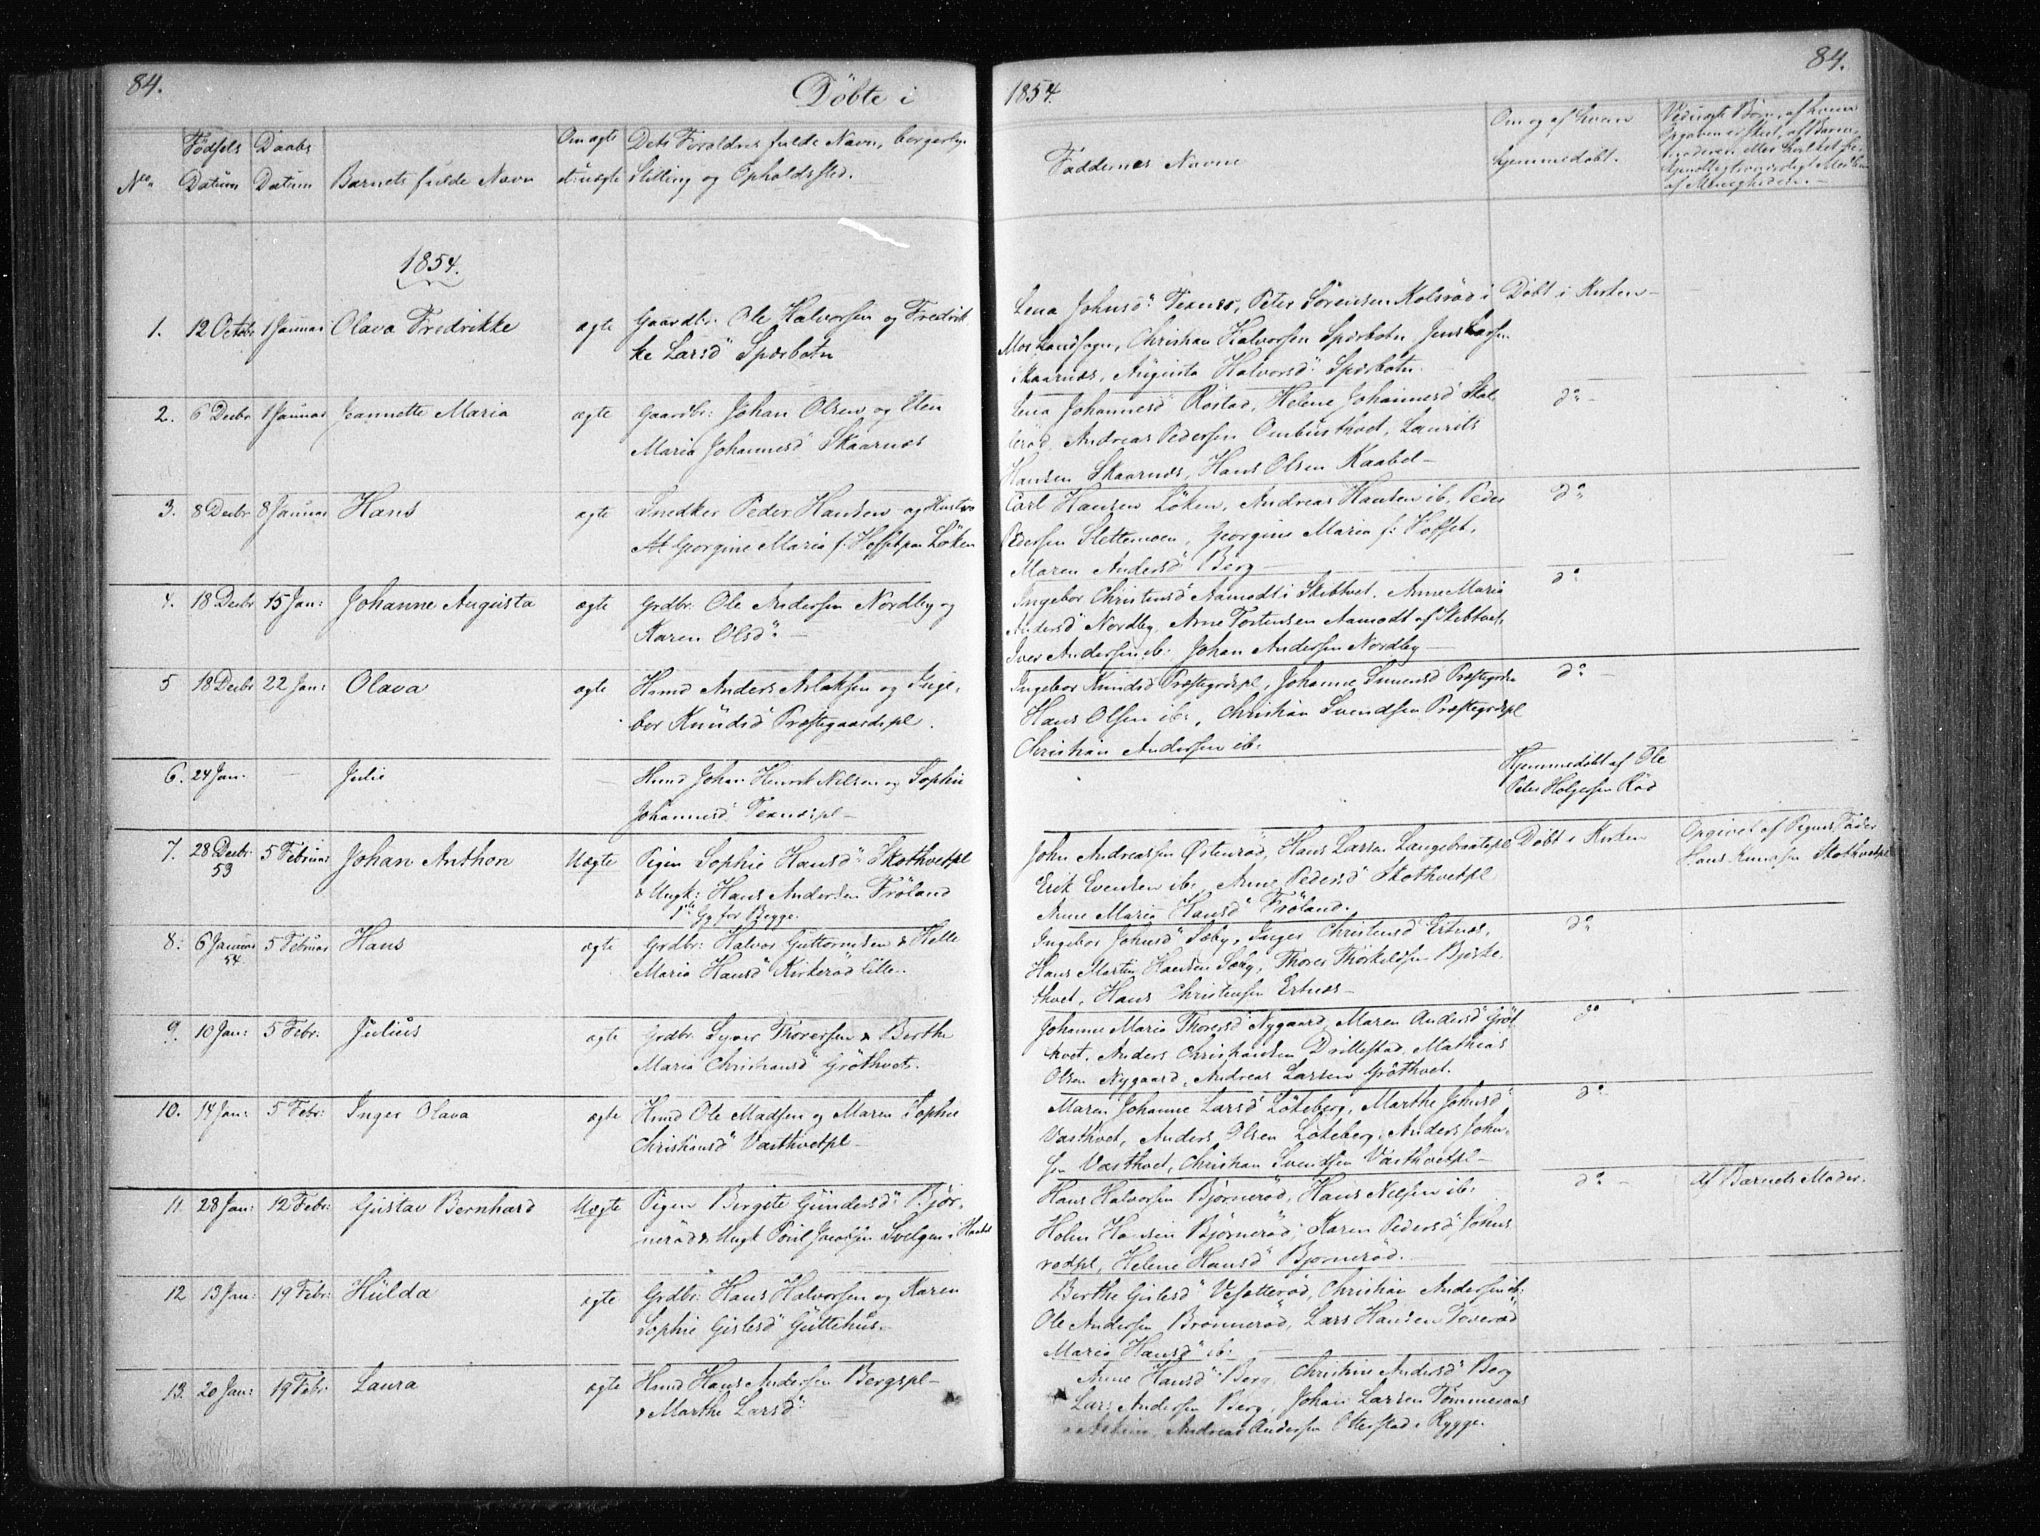 84.
Döbte i 1854.
84.
No
Födsels Datum
Daabs Datum
Barnets fulde Navn
Om ægte el: uægte
Dets Forældres fulde Navn, borgerlige
Stilling og Opholdssted.
Faddernes Navne
Om og af hvem
hjemmedöbt.
Ved uægte Börn, af hvem
Opgaven er skeet, af Barne-
1854.
1. 12 Octobr 1 Januar Olava Fredrikke ægte Gaardbr: Ole Halvorsen og Fredrik
ke Larsd Spærbotn
Lena Johnsd: Texnes, Peter Sörensen Kolsröd i
Mos Landsogn, Christian Halvorsen Spærbotn Jens Larsen
Skaarnæs, Augusta Halvorsd: Spærbotn.
Döbt i Kirken
2. 6 Decbr 1 Januar Jeannette Maria ægte Gaardbr: Johan Olsen og Elen
Maria Johannesd Skaarnæs
Lena Johannesd Röstad, Helene Johannesd Skol
leröd, Andreas Pedersen Ombusthvet, Laurits
Hansen Skaarnæs, Hans Olsen Kaabel
do
3. 8 Decbr 8 Januar Hans ægte Snedker Peder Hansen og Hustro
At Georgine Maria f: Hoffset paa Löken
Carl Hansen Löken, Andreas Hansen ib, Peder
Pedersen Slettemoen, Georgine Maria f: Hoffset,
Maren Andersd Berg
do
4. 18 Decbr 15 Jan: Johanne Augusta ægte Grdbr: Ole Andersen Nordby og
Karen Olsd:
Ingebor Christensd Aamodt i Skibtvet. Anne Maria
Andersd Nordby, Arne Torstensen Aamodt af Skibtvet,
Iver Andersen ib: Johan Andersen Nordby
do
5 18 Decbr 22 Jan: Olava ægte Hmd Anders Aslaksen og Inge-
bor Knudsd Præstegaardspl.
Ingebor Knudsd Præstegrdspl, Johanne Simensd Præstegrdse
Hans Olsen ib:, Christian Svendsen Præstegrdspl
Christian Andersen ib:
do
6. 24 Jan. Julie Hmd Johan Henrik Nilsen og Sophie
Johannesd: Texnæspl
Hjemmedöbt af Ole
Peter Holgersen Röd
7. 28 Decbr 53 5 Februar Johan Anthon Uægte Pigen Sophie Hansd: Skothvetpl
& Ungk: Hans Andersen Fröland
Gg for Begge
John Andreassen Östenröd, Hans Larsen Langebraatepl
Erik Evensen ib:, Anne Pedersd Skothvetpl
Anne Maria Hansd Fröland.
Döbt i Kirken
Opgivet af Pigens Fader
Hans Knudsen Skothvetpl
8: 6 Januar 54. 5 Februar Hans ægte Grdbr: Halvor Guttormsen & Helle
Maria Hansd Kirkeröd lille.
Ingebor Johnsd Sæby, Inger Christensd Ertnæs,
Hans Martin Hansen Sæby, Thores Thorkeldsen Bjerke-
thvet, Hans Christensen Ertnæs
do
9. 10 Jan: 5 Febr: Julius ægte Grdbr: Syver Thoresen & Berthe
Maria Christiansd Gröthvet.
Johanne Maria Thoresd Nygaard, Maren Andersd Gröt
hvet. Anders Christiansen Drillestad, Mathias
Olsen Nygaard, Andreas Larsen Gröthvet.
do
10. 14 Jan: 5 Febr: Inger Olava ægte Hmd Ole Madsen og Maren Sophie
Christiansd Vasthvetpl
Maren Johanne Larsd Löteberg, Marthe Johnsd
Vasthvet, Anders Olsen Löteberg, Anders John-
sen Vasthvet, Christian Svendsen Vasthvetpl
do
11. 28 Jan: 12 Febr: Gustav Bernhard Uægte Pigen Birgite Gundersd: Björ-
neröd & Ungk Poul Jacobsen Svelgen i Haabøl
Hans Halvorsen Björneröd, Hans Nelsen ib:
Holen Hansen Björneröd, Karen Pedersd Johns
rödpl, Helene Hansd Björneröd.
do
Af Barnets Moder.
12 13 Jan: 19 Febr: Hulda ægte Grdbr: Hans Halvorsen og Karen
Sophie Gislesd Guttehus.
Berthe Gislesd Vesetteröd, Christian Andersen ib:
Ole Andersen Brönneröd, Lars Hansen Toveröd
Maria Hansd ib:
13. 20 Jan: 19 Febr Laura ægte Hmd Hans Andersen Bergspl
& Marthe Larsd:
Anne Hansd Berg, Christine Andersd Berg
Lars Andersen Berg, Johan Larsen Tömmeraas
Andreas Andersen Otterstad i Rygge.